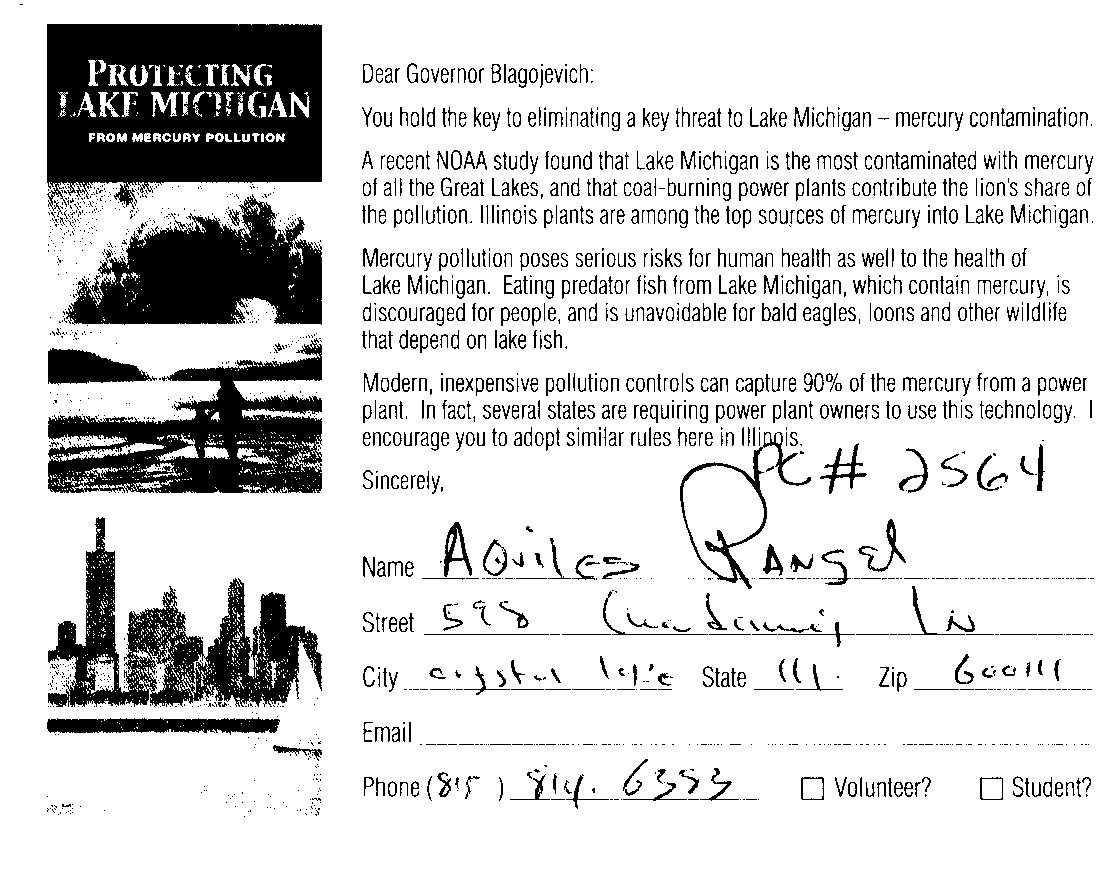 PROTECTING
LAKE MICHIGAN
FROM MERCURY POLLUTION
Dear Governor Blagojevich:
You hold the key to eliminating a key threat to Lake Michigan – mercury contamination.
A recent NOAA study found that Lake Michigan is the most contaminated with mercury
of all the Great Lakes, and that coal-burning power plants contribute the lion's share of
the pollution. Illinois plants are among the top sources of mercury into Lake Michigan.
Mercury pollution poses serious risks for human health as well to the health of
Lake Michigan. Eating predator fish from Lake Michigan, which contain mercury, is
discouraged for people, and is unavoidable for bald eagles, loons and other wildlife
that depend on lake fish.
Modern, inexpensive pollution controls can capture 90% of the mercury from a power
plant. In fact, several states are requiring power plant owners to use this technology. I
encourage you to adopt similar rules here in Illinois.
PC# 2564
Sincerely,
Name AQuiles RANGEl
Street 598 LN
City crystal lake State Ill. Zip
Email
Phone (815) 814. 6383
Volunteer? Student?